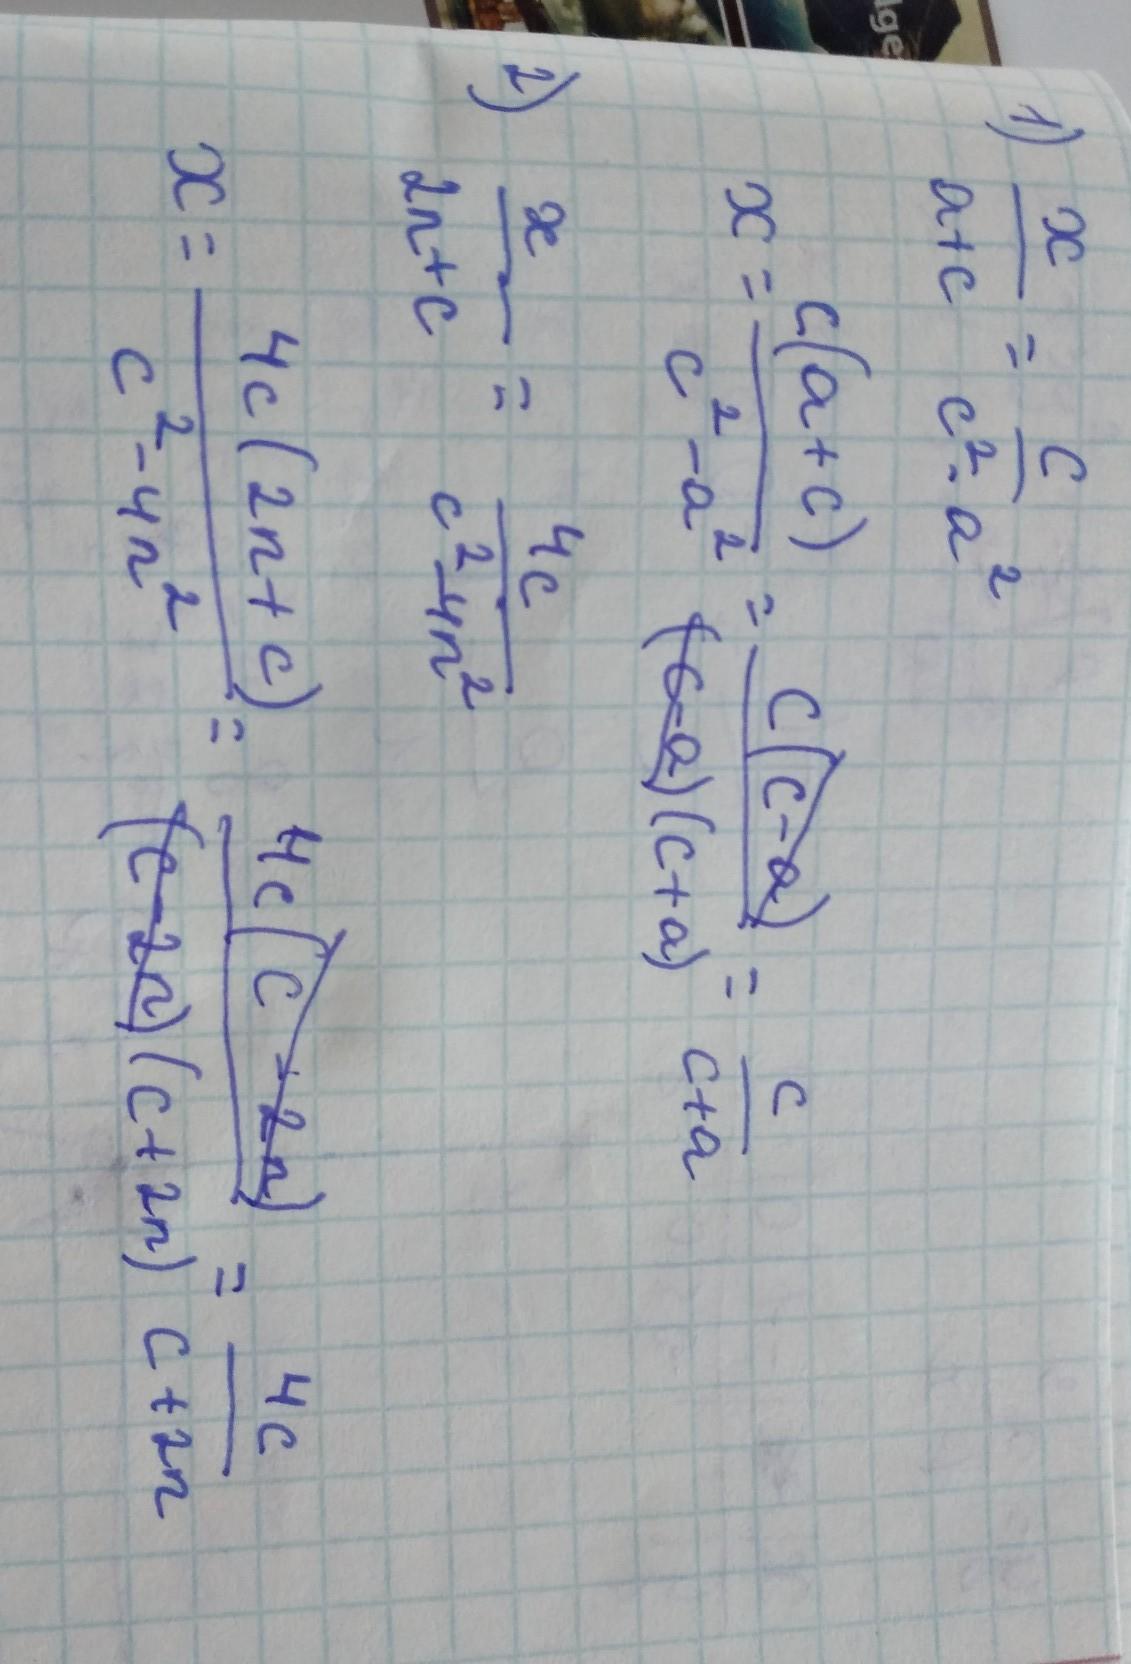 1) x/(a+c) = c/(c²-a²)
x = c(a+c)/(c²-a²) = c(c-a)/((c-a)(c+a)) = c/(c+a)
2) x/(2n+c) = 4c/(c²-4n²)
x = 4c(2n+c)/(c²-4n²) = 4c(c-2n)/((c-2n)(c+2n)) = 4c/(c+2n)